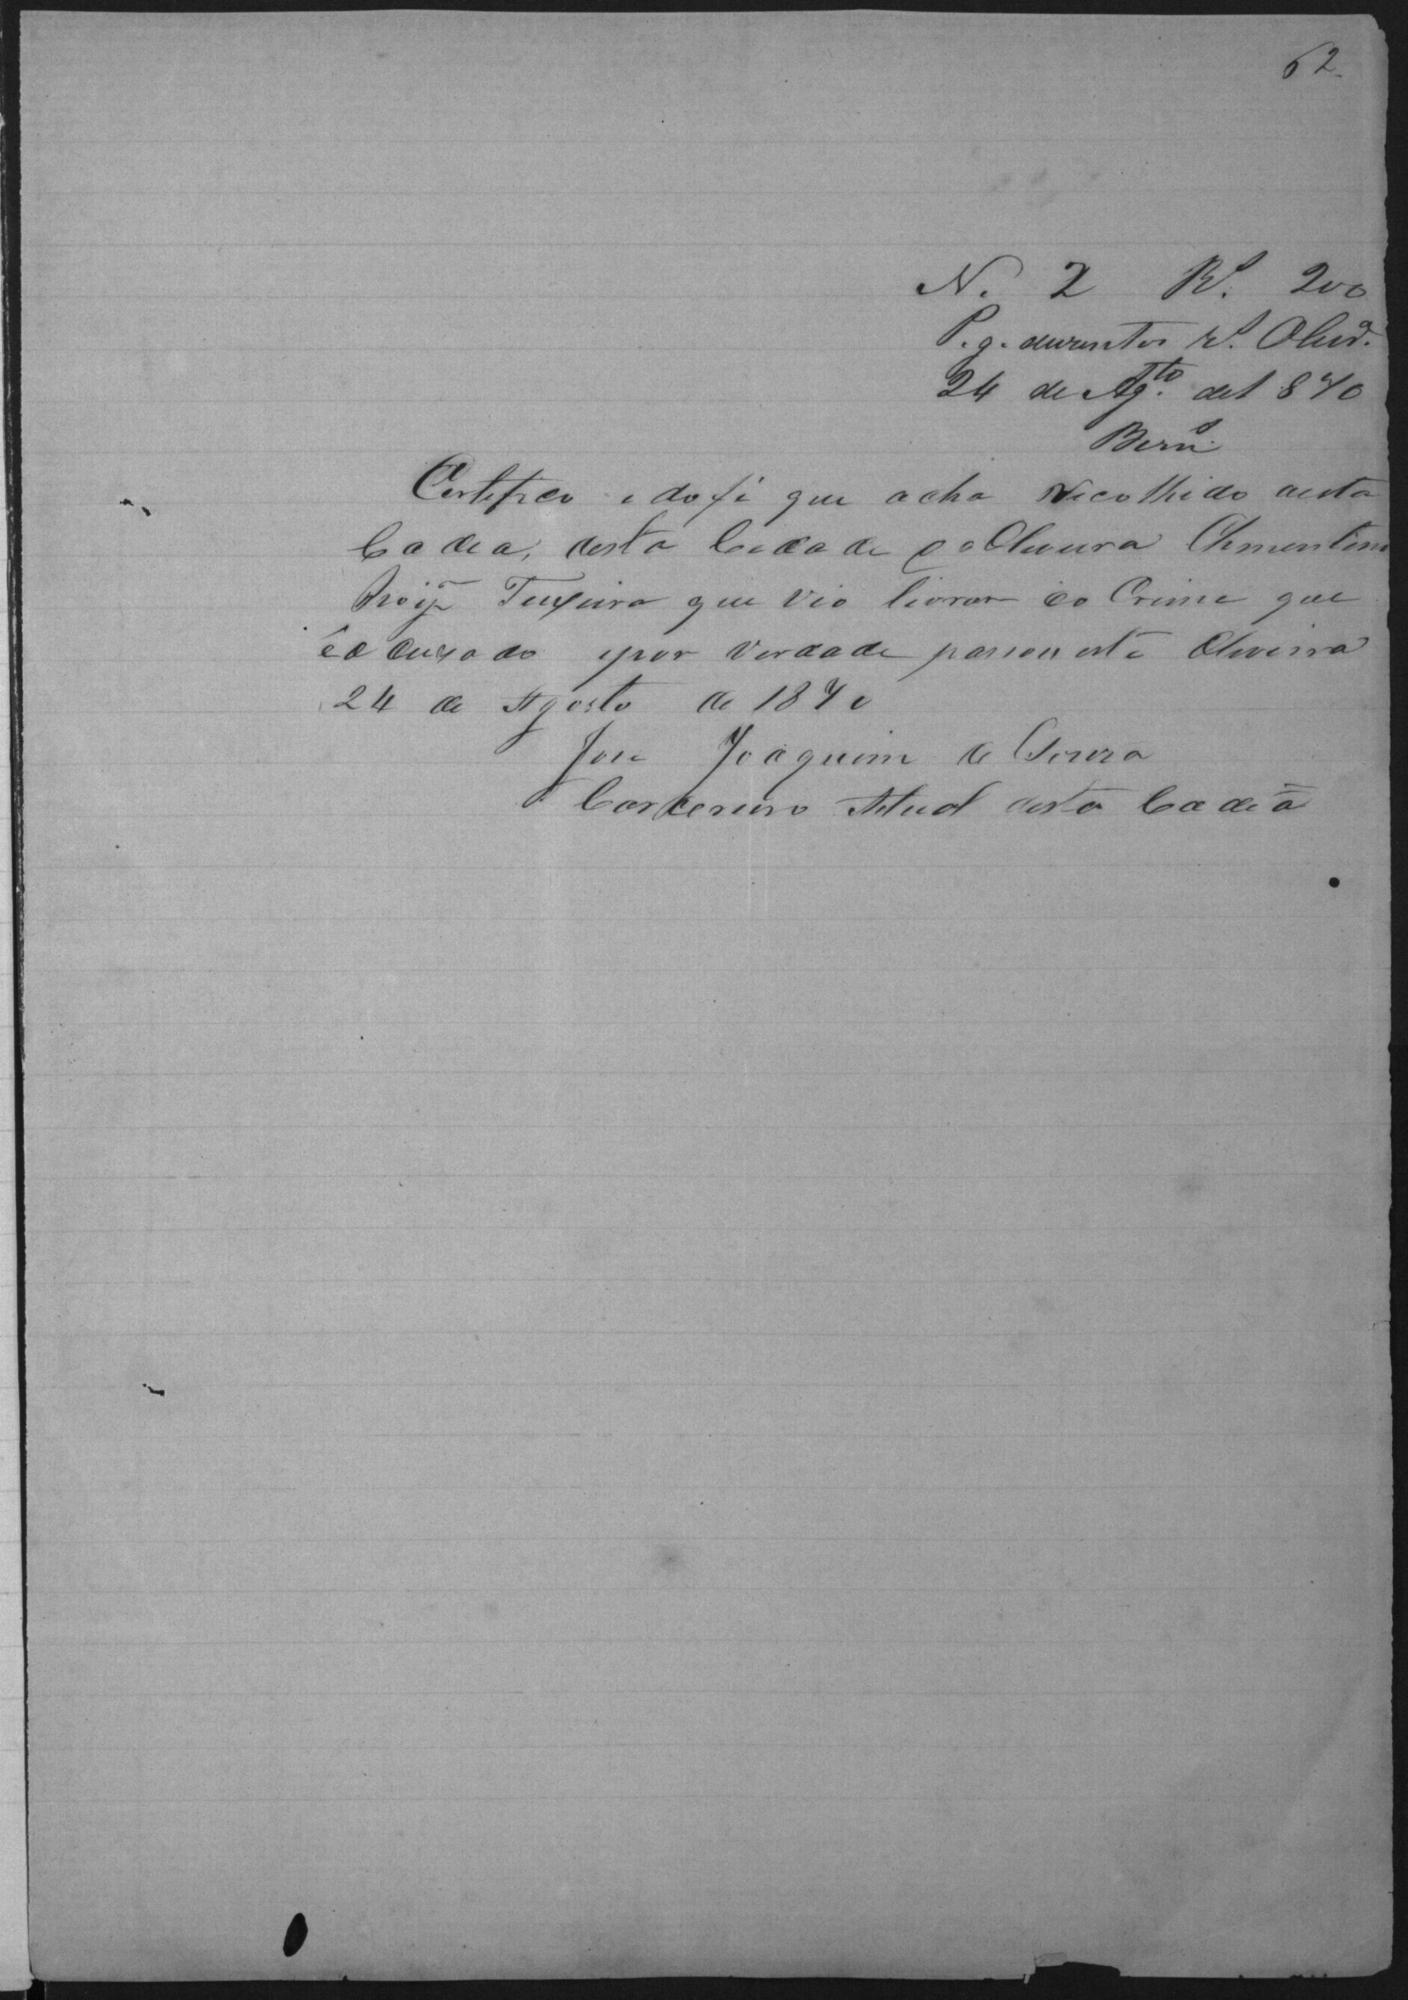 62
N. 2 Rs. 200
P. g. duzentos rs. Olivra.
24 de Agto. de 1870
Certifico e dofé que acha Recolhido nesta
Cadea, desta Cidade Oliveira Clementino
Teixeira que vio livrar do Crime que
é acuzado epor verdade passou este Oliveira
24 de Agosto de 1870
Jose Joaquim de Souza
Carcereiro Atual desta Cadeā